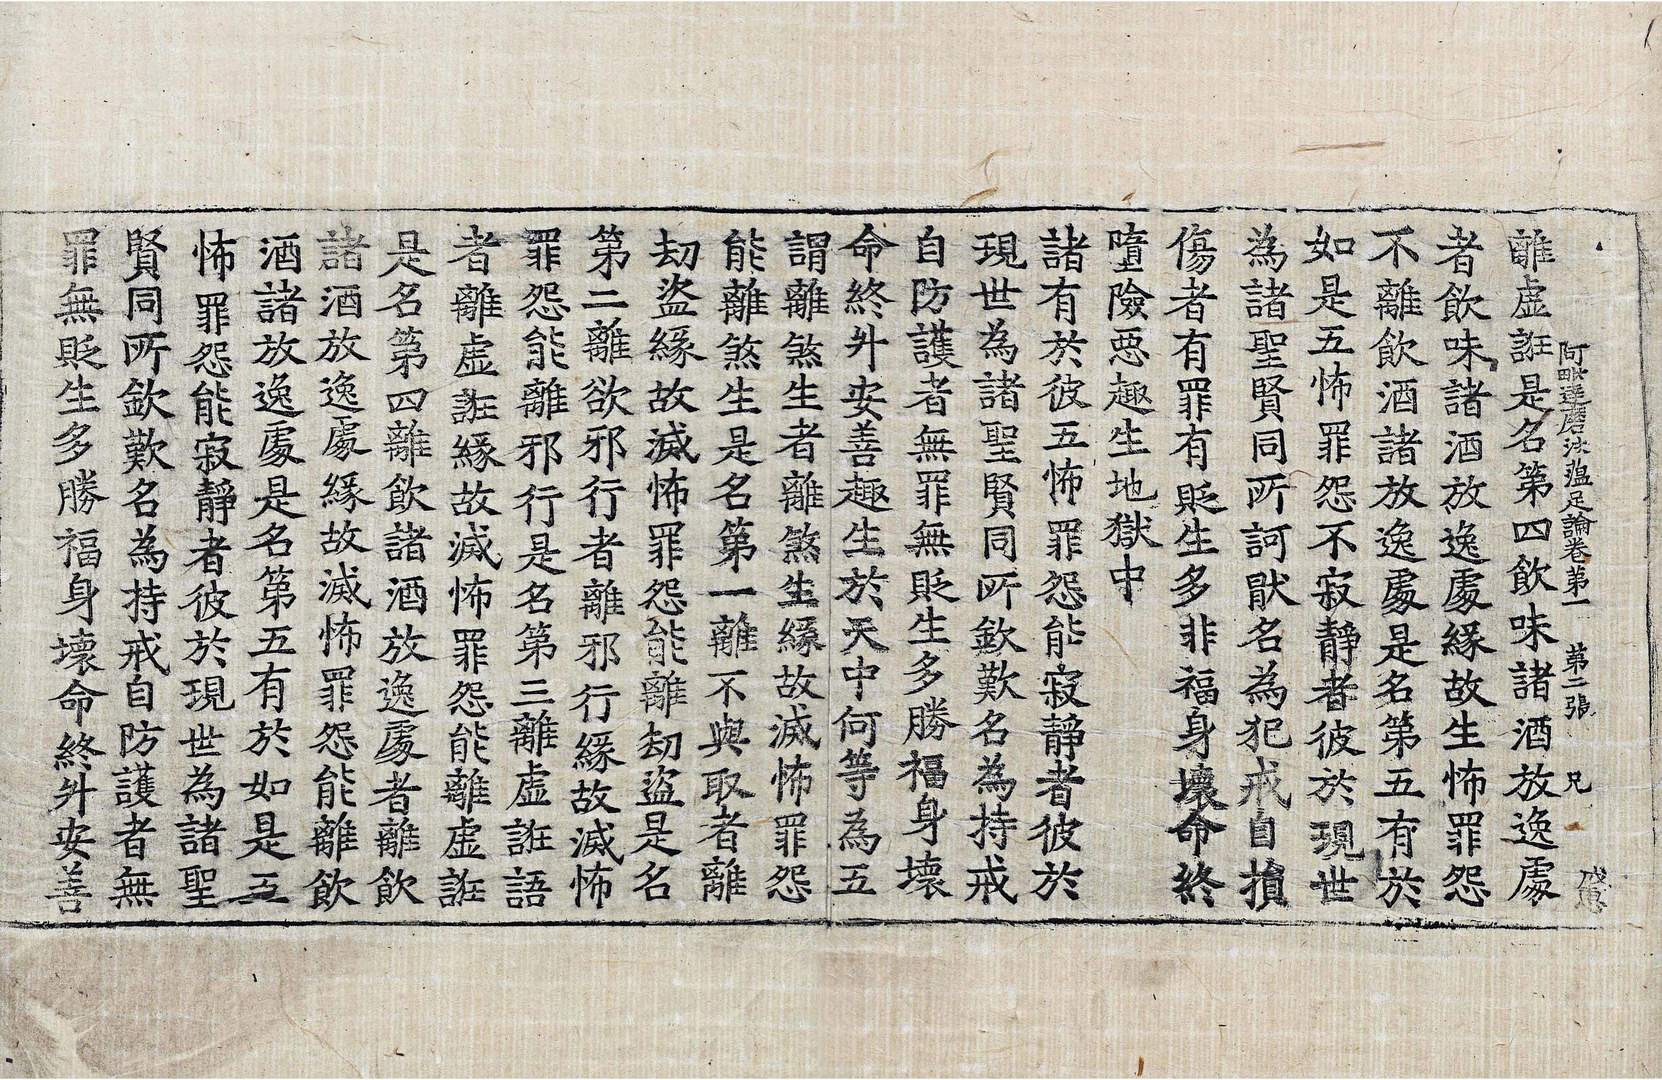 阿毗達磨法蕴足論卷第一　第二張　兄
離虛誑是名第四飲味諸酒放逸處
者飲味諸酒放逸處緣故生怖罪怨
不離飲酒諸放逸處是名第五有於
如是五怖罪怨不寂靜者彼於現世
為諸聖賢同所訶猒名為犯戒自損
傷者有罪有貶生多非福身壞命終
墮險惡趣生地獄中
諸有於彼五怖罪怨能寂靜者彼於
現世為諸聖賢同所欽歎名為持戒
自防護者無罪無貶生多勝福身壞
命終升安善趣生於天中何等為五
謂離煞生者離煞生緣故滅怖罪怨
能離煞生是名第一離不與取者離
劫盜緣故滅怖罪怨能離劫盜是名
第二離欲邪行者離邪行緣故滅怖
罪怨能離邪行是名第三離虛誑語
者離虛誑緣故滅怖罪怨能離虛誑
是名第四離飲諸酒放逸處者離飲
諸酒放逸處緣故滅怖罪怨能離飲
酒諸放逸處是名第五有於如是五
怖罪怨能寂靜者彼於現世為諸聖
賢同所欽歎名為持戒自防護者無
罪無貶生多勝福身壞命終升安善